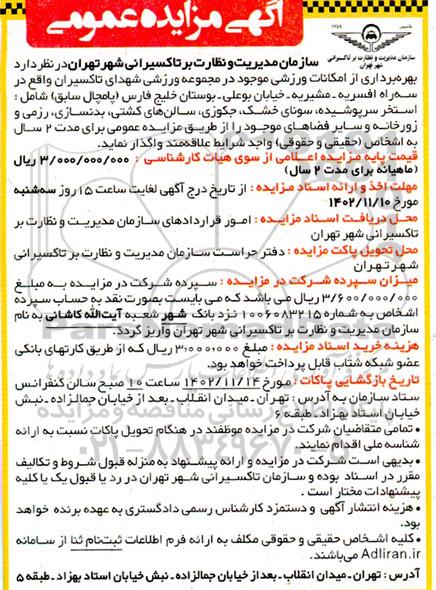 آگهی مزایده عمومی
تاسیس ۱۳۵۹
سازمان مدیریت و نظارت بر تاکسیرانی
شهر تهران
سازمان مدیریت و نظارت بر تاکسیرانی شهر تهران در نظر دارد
بهره‌برداری از امکانات ورزشی موجود در مجموعه ورزشی شهدای تاکسیران واقع در
سه‌راه افسریه ـ مشیریه ـ خیابان بوعلی ـ بوستان خلیج فارس (یامچال سابق) شامل :
استخر سرپوشیده، سونای خشک، جکوزی، سالن‌های کشتی، بدنسازی، رزمی و
زورخانه و سایر فضاهای موجود را از طریق مزایده عمومی برای مدت ۲ سال
به اشخاص (حقیقی و حقوقی) واجد شرایط علاقمند واگذار نماید.
قیمت پایه مزایده اعلامی از سوی هیات کارشناسی : ۳/۰۰۰/۰۰۰/۰۰۰ ریال
(ماهیانه برای مدت ۲ سال)
مهلت اخذ و ارائه اسناد مزایده : از تاریخ درج آگهی لغایت ساعت ۱۵ روز سه‌شنبه
مورخ ۱۴۰۲/۱۱/۱۰
محل دریافت اسناد مزایده : امور قراردادهای سازمان مدیریت و نظارت بر
تاکسیرانی شهر تهران
محل تحویل پاکت مزایده : دفتر حراست سازمان مدیریت و نظارت بر تاکسیرانی
شهر تهران
میزان سپرده شرکت در مزایده : سپرده شرکت در مزایده به مبلغ
۳/۶۰۰/۰۰۰/۰۰۰ ریال می باشد که می بایست بصورت نقد به حساب سپرده
اشخاص به شماره ۱۰۰۶۰۸۳۲۱۵ نزد بانک شهر شعبه آیت‌الله کاشانی به نام
سازمان مدیریت و نظارت بر تاکسیرانی شهر تهران واریز گردد.
هزینه خرید اسناد مزایده : مبلغ ۳۰۰۰۰۰۰ ریال که از طریق کارتهای بانکی
عضو شبکه شتاب قابل پرداخت خواهد بود.
تاریخ بازگشایی پاکات : مورخ ۱۴۰۲/۱۱/۱۴ ساعت ۱۰ صبح سالن کنفرانس
ستاد سازمان به آدرس : تهران ـ میدان انقلاب ـ بعد از خیابان جمالزاده ـ نبش
خیابان استاد بهزاد ـ طبقه ۶
• تمامی متقاضیان شرکت در مزایده موظفند در هنگام تحویل پاکات نسبت به ارائه
شناسه ملی اقدام نمایند.
• بدیهی است شرکت در مزایده و ارائه پیشنهاد به منزله قبول شروط و تکالیف
مقرر در اسناد بوده و سازمان تاکسیرانی شهر تهران در رد یا قبول یک یا کلیه
پیشنهادات مختار است .
• هزینه انتشار آگهی و دستمزد کارشناس رسمی دادگستری به عهده برنده خواهد
بود.
• کلیه اشخاص حقیقی و حقوقی مکلف به ارائه فرم اطلاعات ثبت‌نام ثنا از سامانه
Adliran.ir می‌باشند.
آدرس : تهران ـ میدان انقلاب ـ بعد از خیابان جمالزاده ـ نبش خیابان استاد بهزاد ـ طبقه ۵